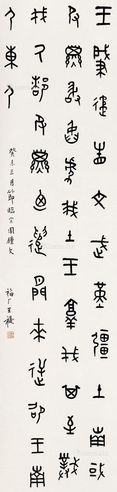 王肇遹省文武堇疆土南或
𠬝孳敢臽虐我土王𦎫伐其至𢦏
伐氒都𠬝孳迺遣閒來逆卲王南
尸東尸
癸未三月節臨宗周鐘文
福厂王禔